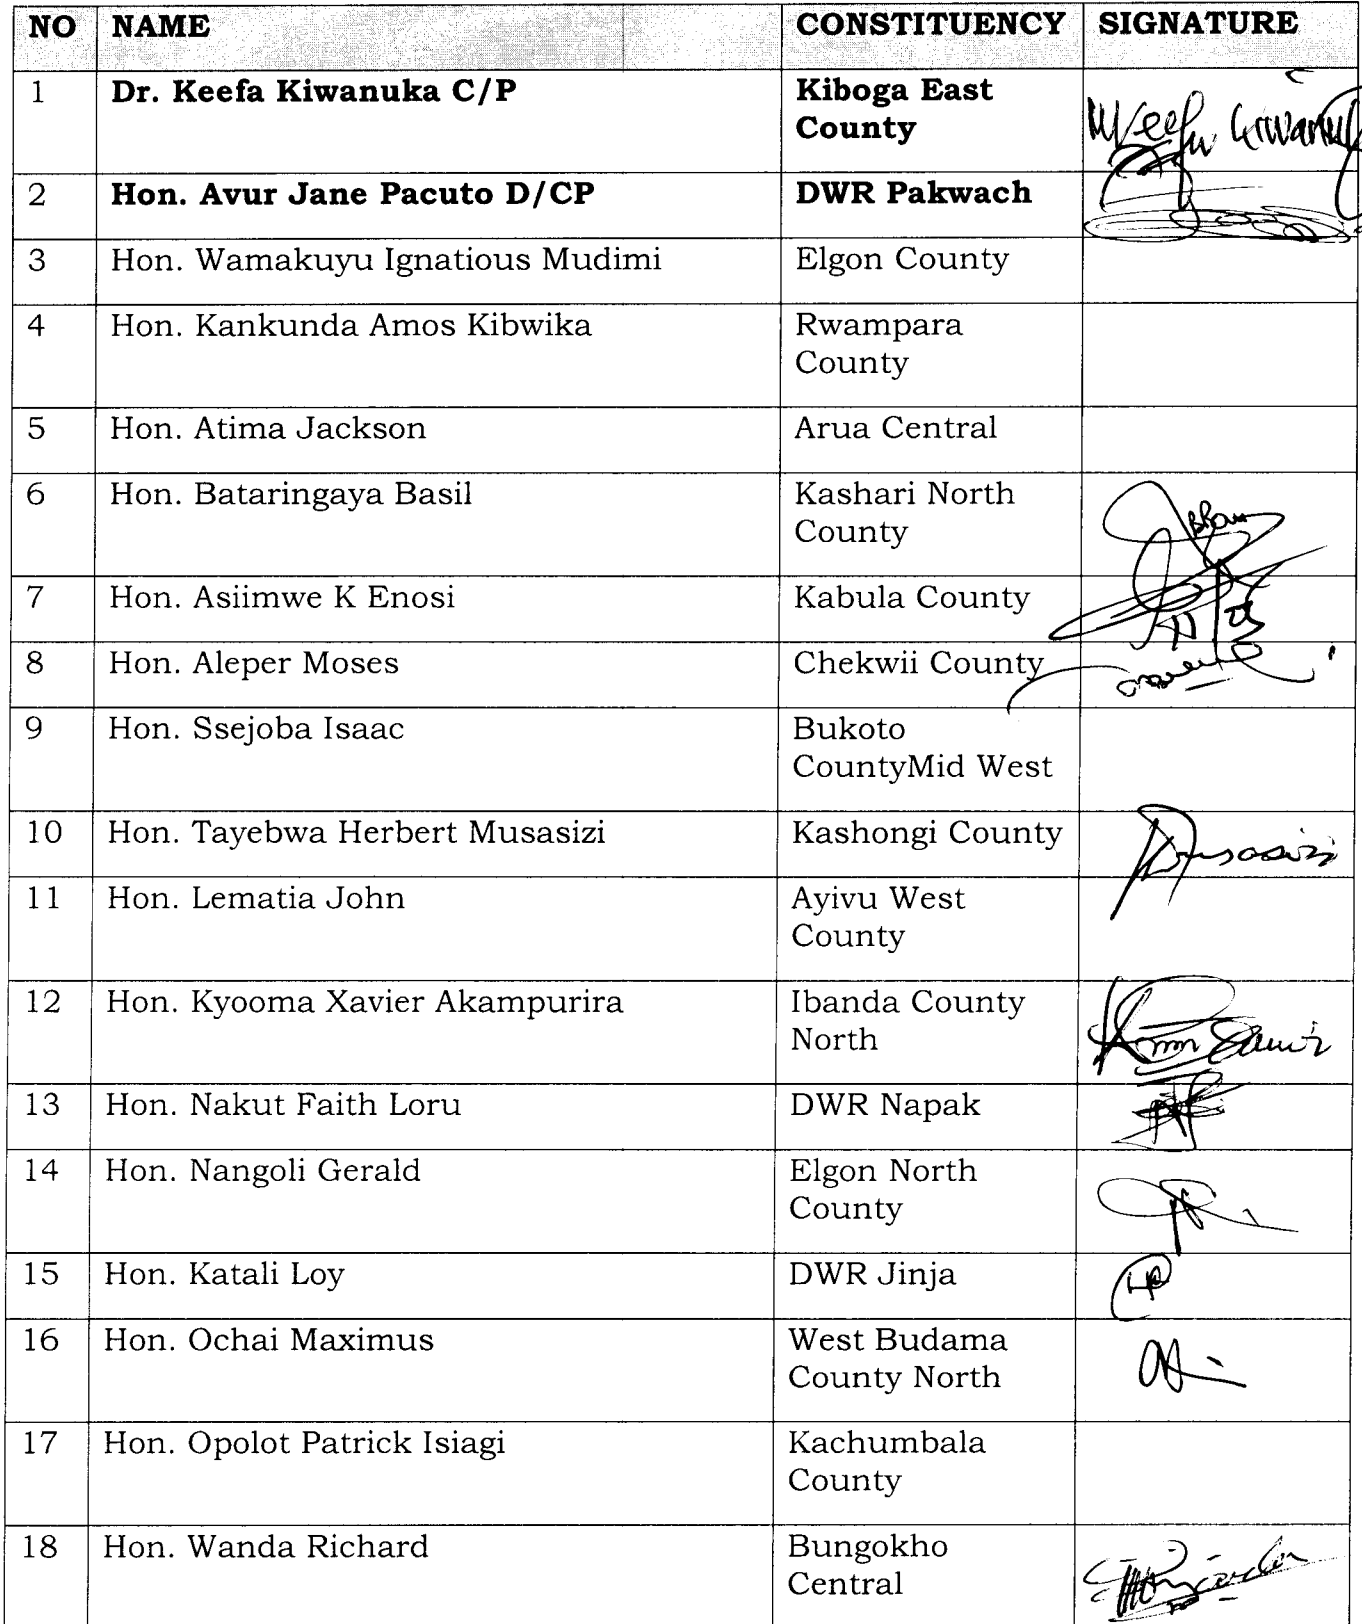 NO NAME CONSTITUENCY SIGNATURE
1 Dr. Keefa Kiwanuka C/P Kiboga East
County
Keefa Kiwanuka
2 Hon. Avur Jane Pacuto D/CP DWR Pakwach
3 Hon. Wamakuyu Ignatious Mudimi Elgon County
4 Hon. Kankunda Amos Kibwika Rwampara
County
5 Hon. Atima Jackson Arua Central
6 Hon. Bataringaya Basil Kashari North
County
7 Hon. Asiimwe K Enosi Kabula County
8 Hon. Aleper Moses Chekwii County
9 Hon. Ssejoba Isaac Bukoto
CountyMid West
10 Hon. Tayebwa Herbert Musasizi Kashongi County
11 Hon. Lematia John Ayivu West
County
12 Hon. Kyooma Xavier Akampurira Ibanda County
North
13 Hon. Nakut Faith Loru DWR Napak
14 Hon. Nangoli Gerald Elgon North
County
15 Hon. Katali Loy DWR Jinja
16 Hon. Ochai Maximus West Budama
County North
17 Hon. Opolot Patrick Isiagi Kachumbala
County
18 Hon. Wanda Richard Bungokho
Central